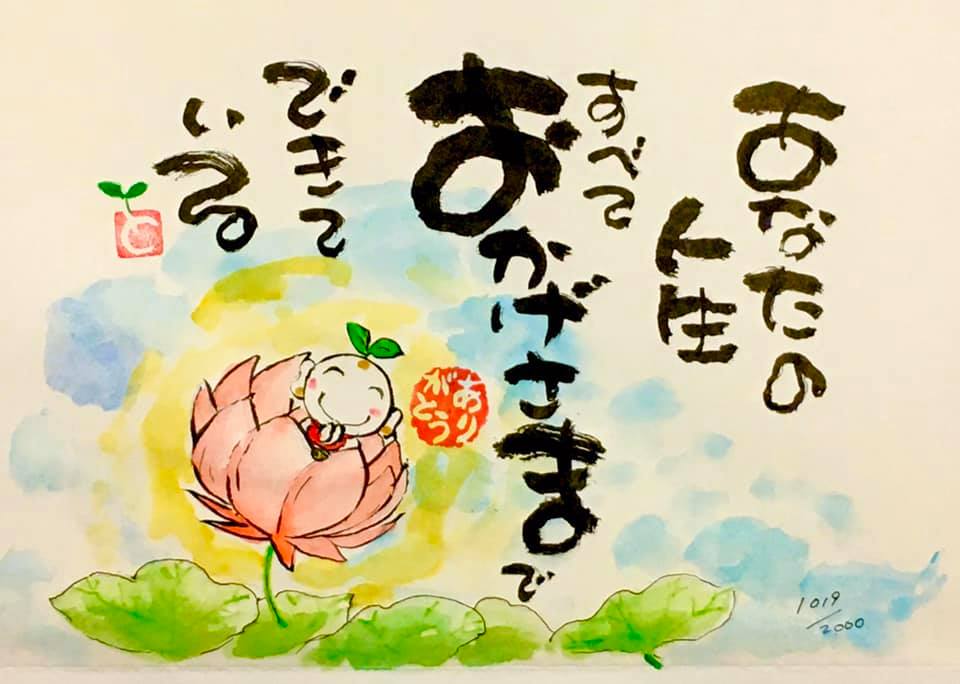 あなたの
人生
すべて
おかげさまで
できて
いる
あり
がとう
と
1019/2000